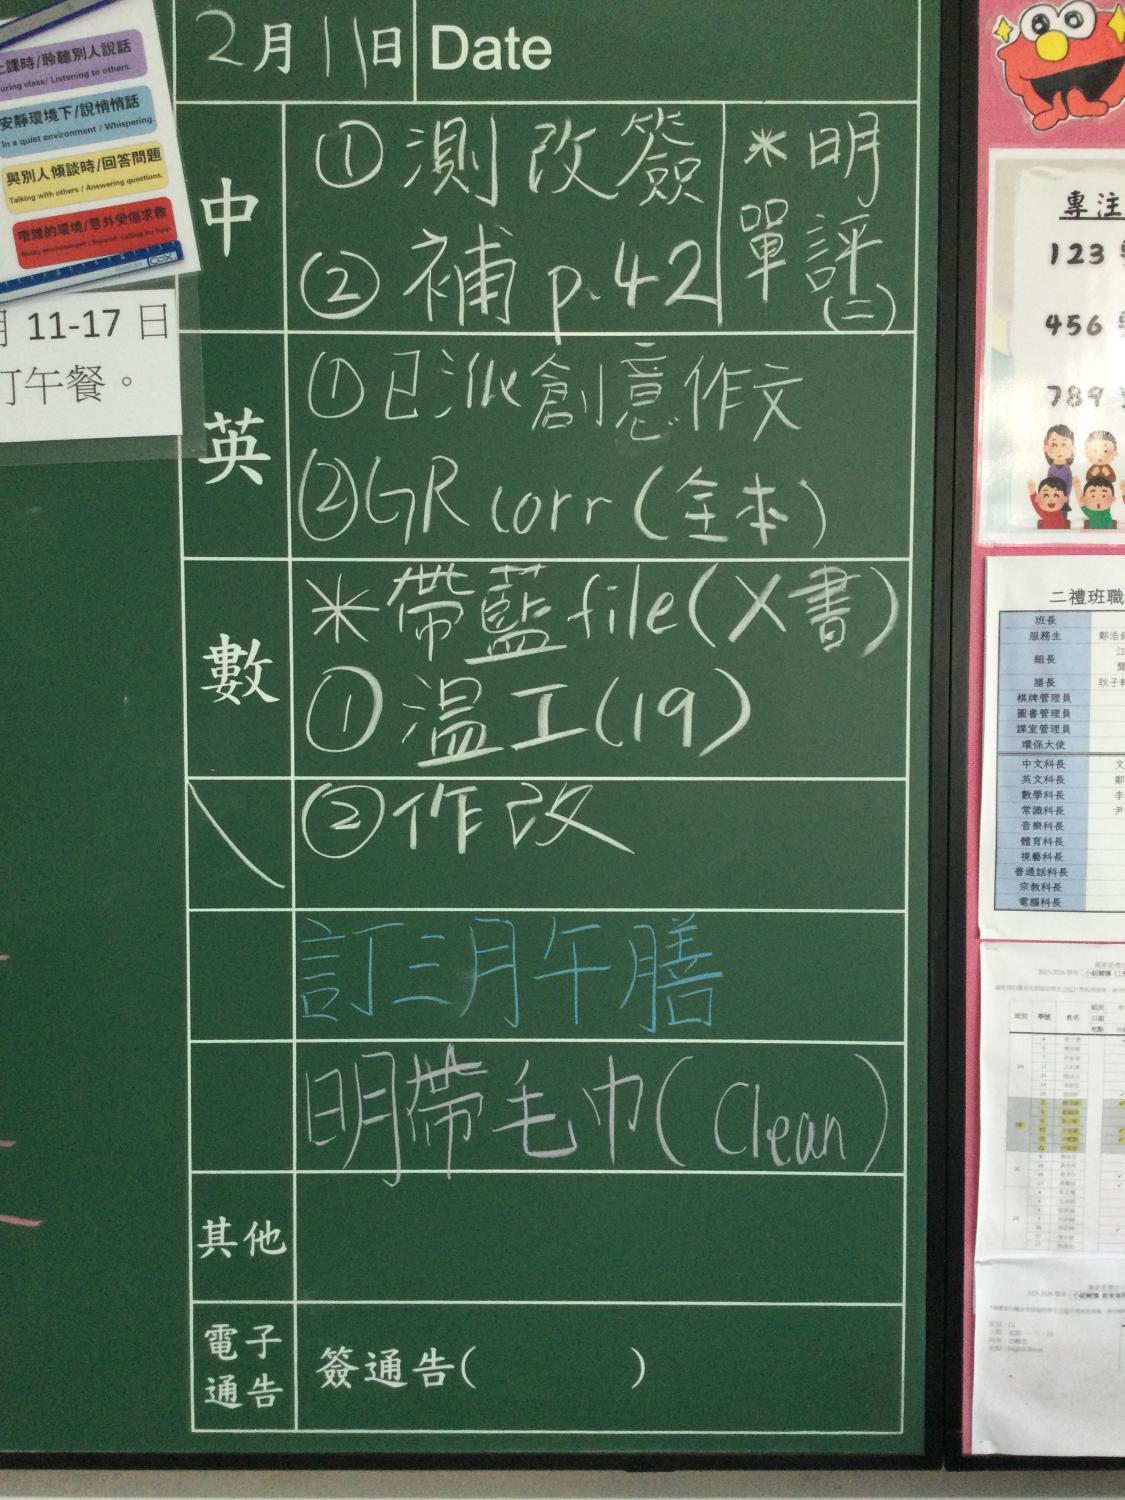 上課時/聆聽別人說話
During class/ Listening to others.
安靜環境下/說悄悄話
In a quiet environment / Whispering.
與別人傾談時/回答問題
Talking with others / Answering questions.
嘈雜的環境/意外受傷求救
月 11-17 日
訂午餐。
2月11日 Date
中
① 測改簽
② 補 p.42
*明
單評
(二)
英
①已派創意作文
②GR corr (全本)
數
*帶藍file(X書)
①溫工(19)
②作改
訂三月午膳
明帶毛巾(Clean)
其他
電子
通告
簽通告( )
專注
123
456
789
二禮班職
班長
服務生
組長
膳長
棋牌管理員
圖書管理員
課室管理員
環保大使
中文科長
英文科長
數學科長
常識科長
音樂科長
體育科長
視藝科長
普通話科長
宗教科長
電腦科長